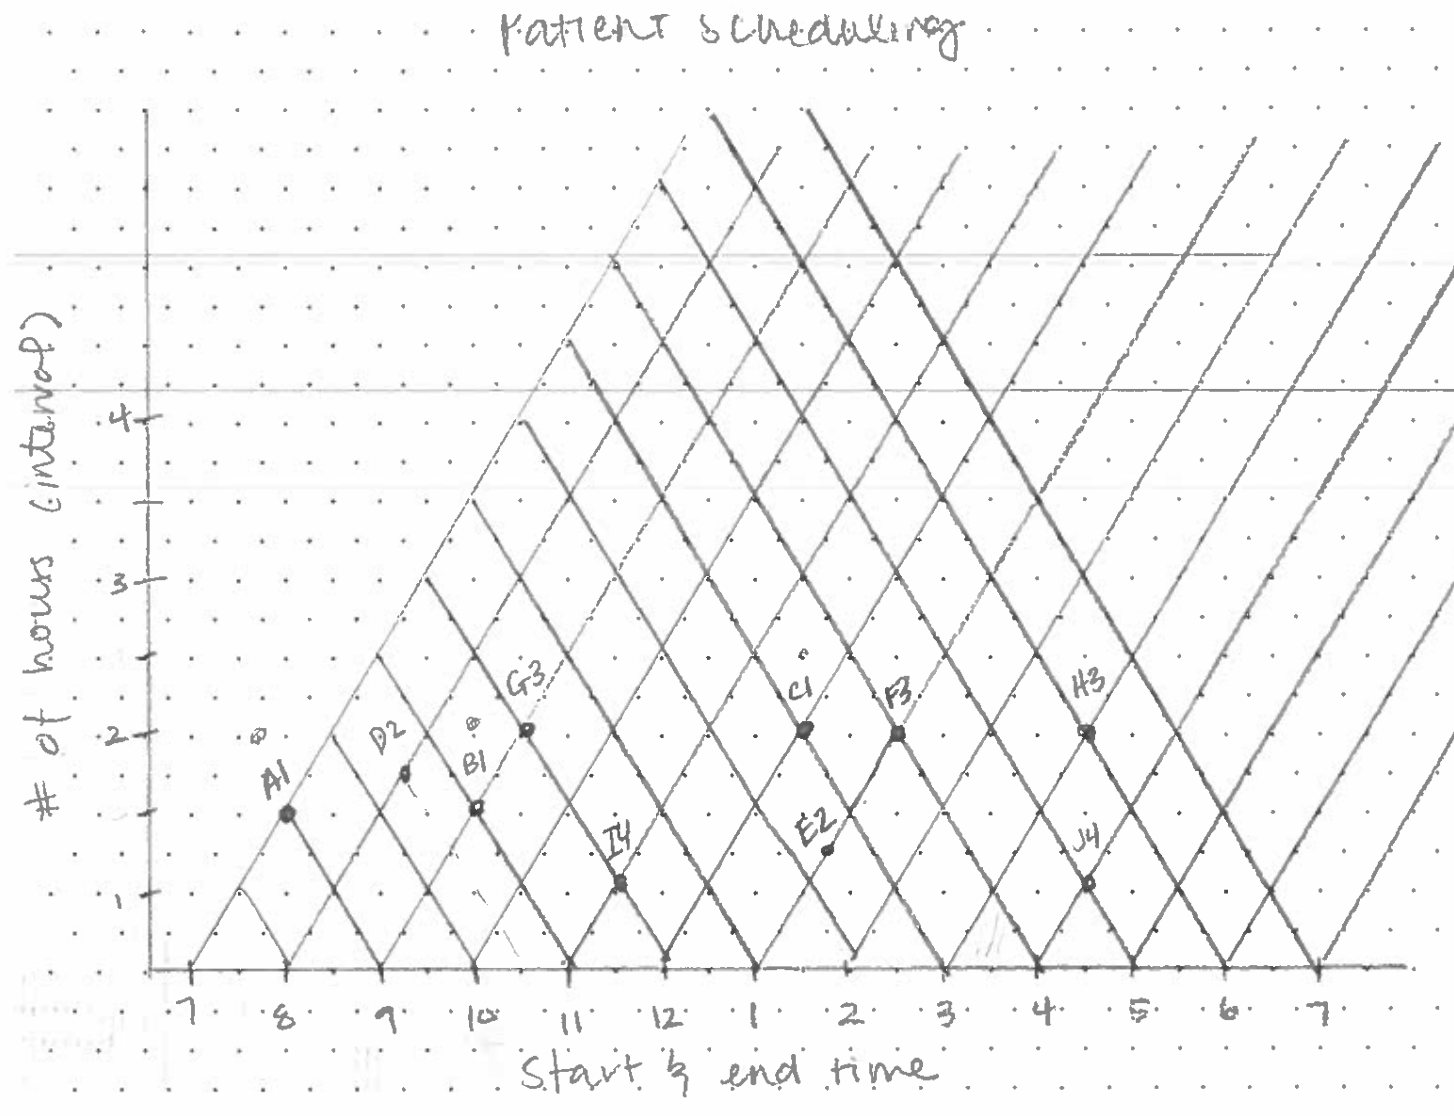 Patient scheduling
# of hours (interval)
4
3
2
1
G3
C1
F3
H3
D2
B1
A1
I4
E2
J4
7 8 9 10 11 12 1 2 3 4 5 6 7
Start & end time